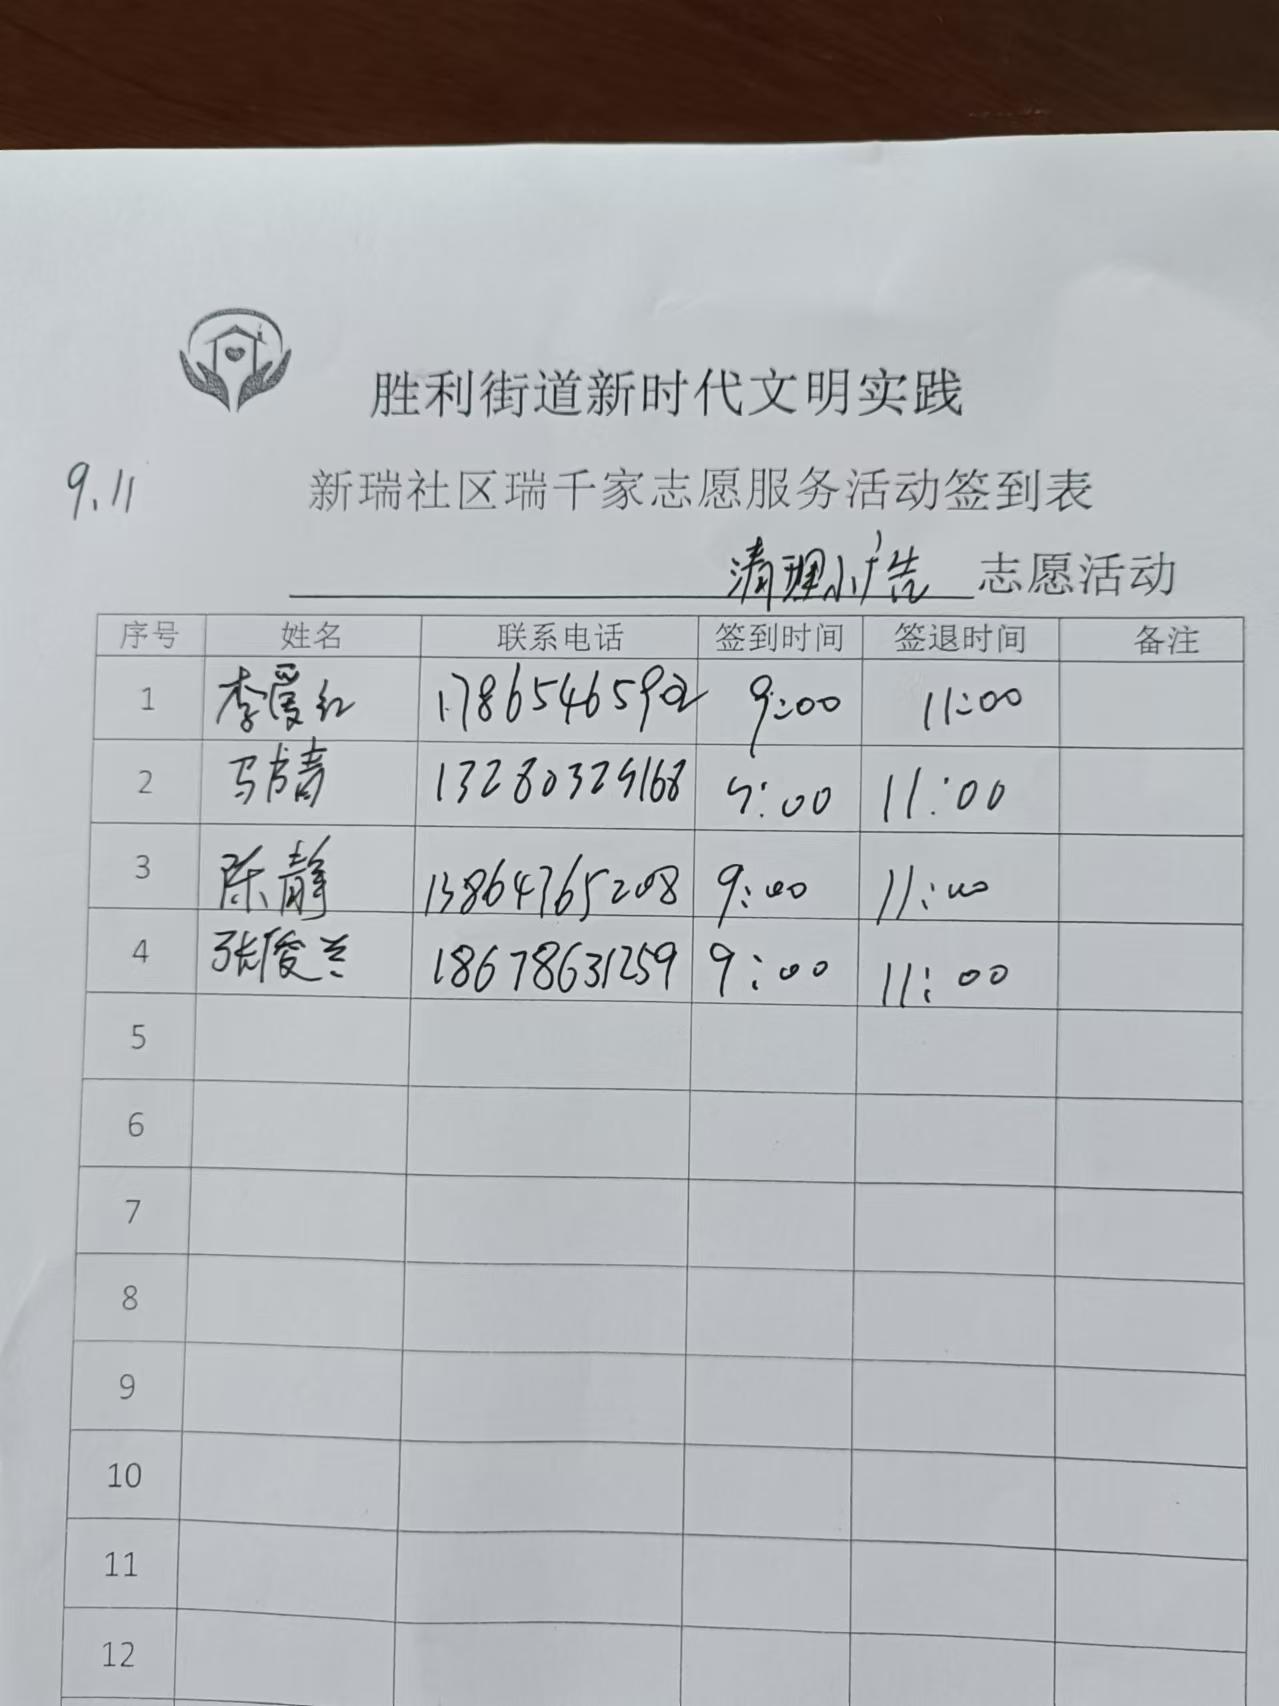 胜利街道新时代文明实践
9.11 新瑞社区瑞千家志愿服务活动签到表
清理小广告 志愿活动
序号 姓名 联系电话 签到时间 签退时间 备注
1 李爱红 17865465902 9:00 11:00
2 13280329168 9:00 11:00
3 陈静 13864765208 9:00 11:00
4 张俊兰 18678631259 9:00 11:00
5
6
7
8
9
10
11
12